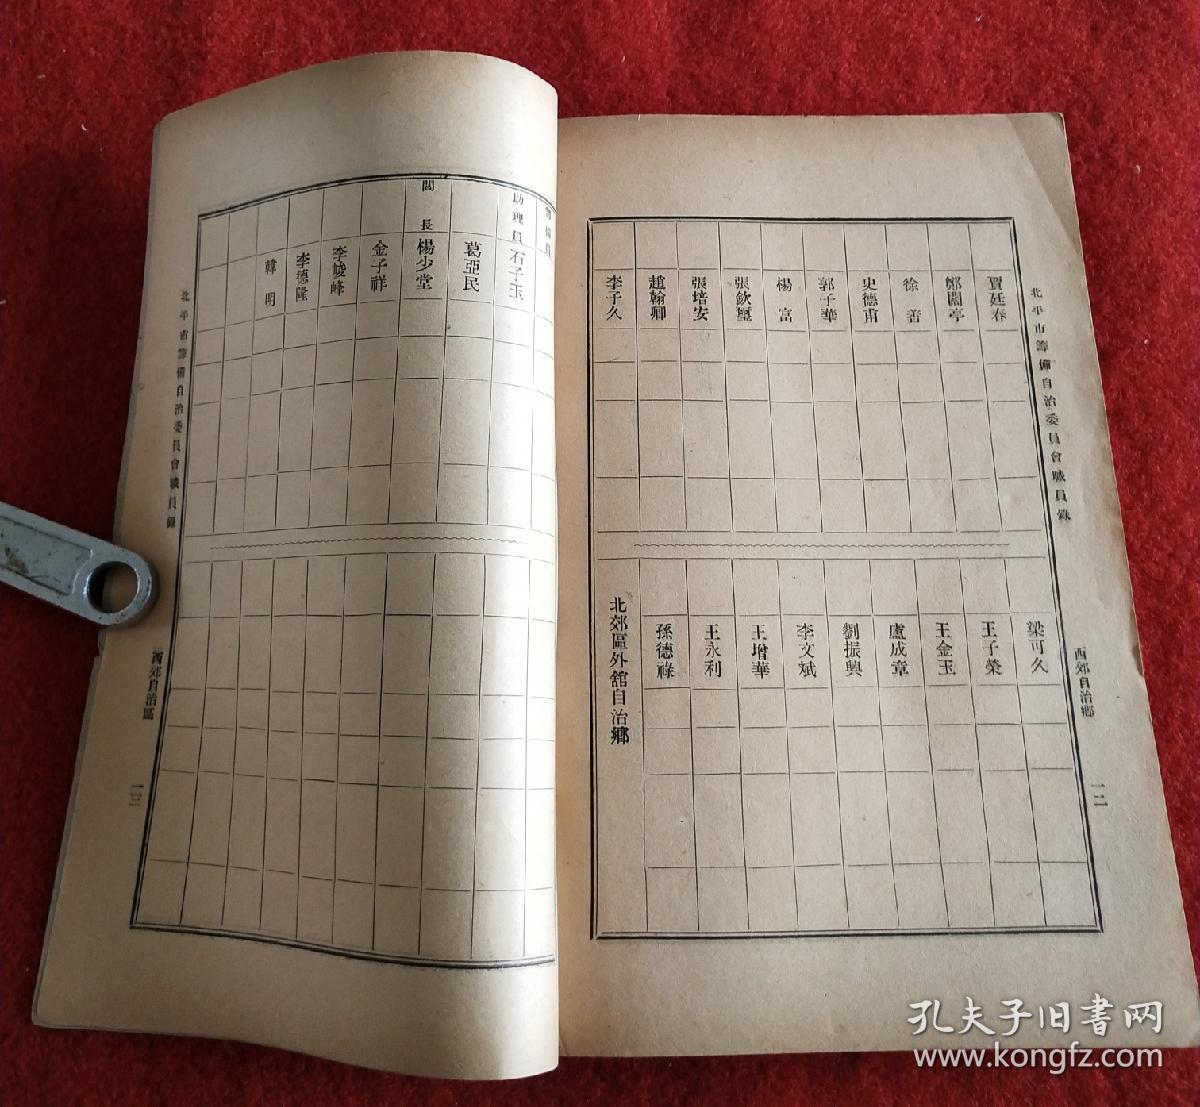 北平市籌備自治委員會職員錄
西郊自治鄉
一二
賈廷春
鄭蘭亭
徐善
史德甫
郭子華
楊富
張欽璽
張培安
趙翰卿
李子久
梁可久
王子榮
王金玉
盧成章
劉振興
李文斌
王增華
王永利
孫德祿
北郊區外舘自治鄉
助理員 石子玉
葛亞民
閭長 楊少堂
金子祥
李峻峰
李德隆
韓明
北平市籌備自治委員會職員錄
西郊自治區
一三
孔夫子旧书网
www.kongfz.com